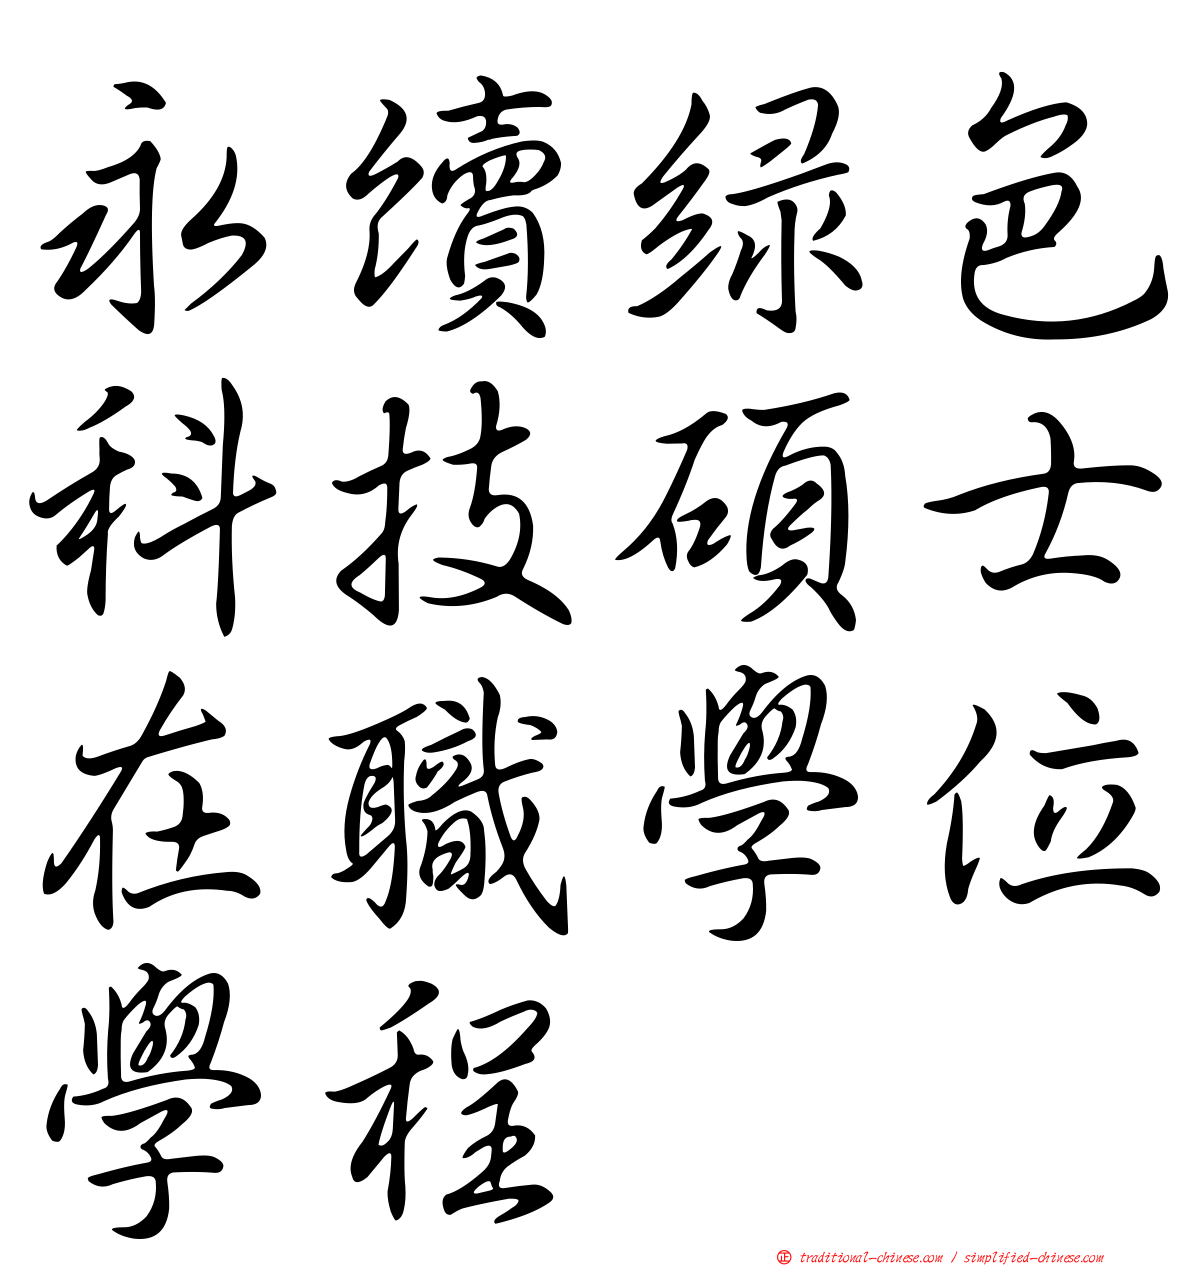 永續綠色
科技碩士
在職學位
學程
正 traditional-chinese.com / simplified-chinese.com